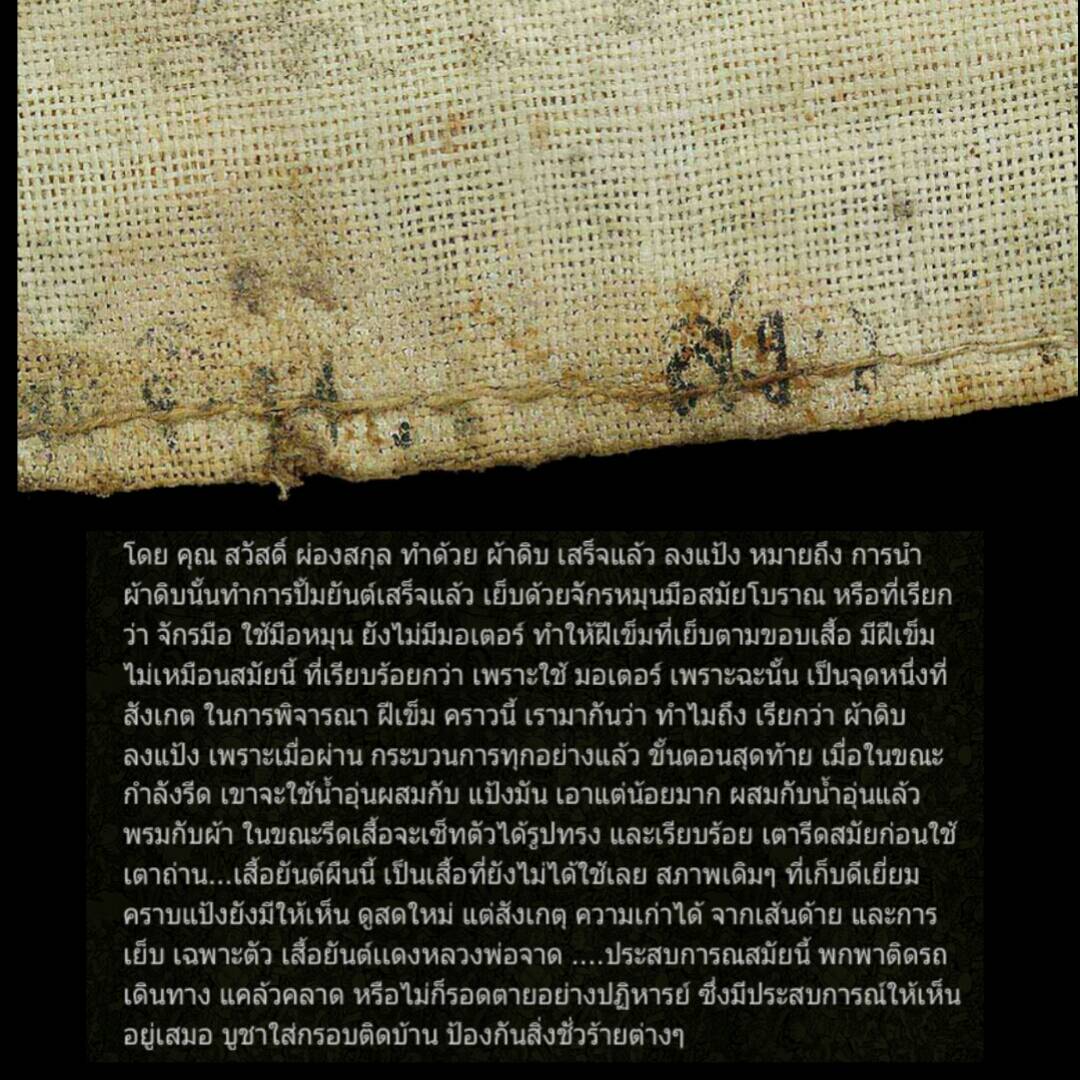 โดย คุณ สวัสดิ์ ผ่องสกุล ทำด้วย ผ้าดิบ เสร็จแล้ว ลงแป้ง หมายถึง การนำ
ผ้าดิบนั้นทำการปั้มยันต์เสร็จแล้ว เย็บด้วยจักรหมุนมือสมัยโบราณ หรือที่เรียก
ว่า จักรมือ ใช้มือหมุน ยังไม่มีมอเตอร์ ทำให้ฝีเข็มที่เย็บตามขอบเสื้อ มีฝีเข็ม
ไม่เหมือนสมัยนี้ ที่เรียบร้อยกว่า เพราะใช้ มอเตอร์ เพราะฉะนั้น เป็นจุดหนึ่งที่
สังเกต ในการพิจารณา ฝีเข็ม คราวนี้ เรามากันว่า ทำไมถึง เรียกว่า ผ้าดิบ
ลงแป้ง เพราะเมื่อผ่าน กระบวนการทุกอย่างแล้ว ขั้นตอนสุดท้าย เมื่อในขณะ
กำลังรีด เขาจะใช้น้ำอุ่นผสมกับ แป้งมัน เอาแต่น้อยมาก ผสมกับน้ำอุ่นแล้ว
พรมกับผ้า ในขณะรีดเสื้อจะเซ็ทตัวได้รูปทรง และเรียบร้อย เตารีดสมัยก่อนใช้
เตาถ่าน...เสื้อยันต์ผืนนี้ เป็นเสื้อที่ยังไม่ได้ใช้เลย สภาพเดิมๆ ที่เก็บดีเยี่ยม
คราบแป้งยังมีให้เห็น ดูสดใหม่ แต่สังเกตุ ความเก่าได้ จากเส้นด้าย และการ
เย็บ เฉพาะตัว เสื้อยันต์แดงหลวงพ่อจาด ....ประสบการณสมัยนี้ พกพาติดรถ
เดินทาง แคล้วคลาด หรือไม่ก็รอดตายอย่างปฏิหารย์ ซึ่งมีประสบการณ์ให้เห็น
อยู่เสมอ บูชาใส่กรอบติดบ้าน ป้องกันสิ่งชั่วร้ายต่างๆ